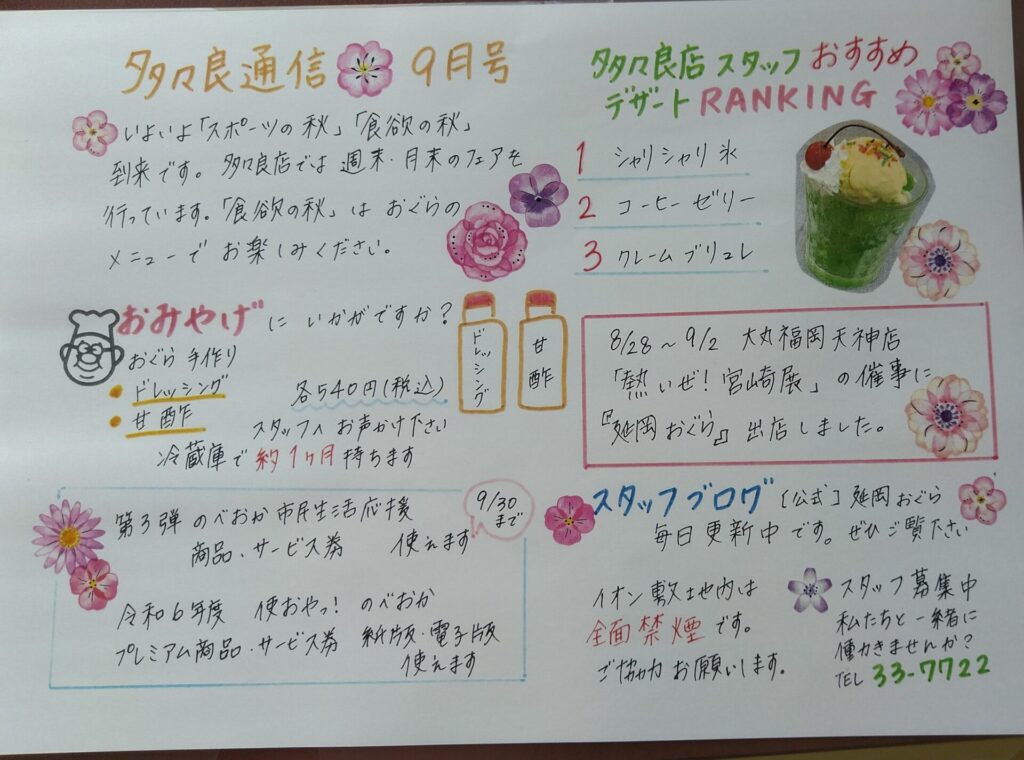 多々良通信 9月号
いよいよ「スポーツの秋」「食欲の秋」
到来です。多々良店では週末・月末のフェアを
行っています。「食欲の秋」はおぐらの
メニューでお楽しみください。
おみやげにいかがですか?
おぐら手作り
・ドレッシング 各540円(税込)
・甘酢
スタッフへお声かけ下さい
冷蔵庫で約1ヶ月持ちます
ドレッシング
甘酢
第3弾 のべおか市民生活応援
商品・サービス券 使えます
9/30
まで
令和6年度 使おやっ! のべおか
プレミアム商品・サービス券 紙版・電子版
使えます
多々良店スタッフおすすめ
デザートRANKING
1 シャリシャリ氷
2 コーヒーゼリー
3 クレームブリュレ
8/28~9/2 大丸福岡天神店
「熱いぜ!宮崎展」の催事に
『延岡おぐら』出店しました。
スタッフブログ [公式]延岡おぐら
毎日更新中です。ぜひご覧下さい
イオン敷地内は
全面禁煙です。
ご協力お願いします。
スタッフ募集中
私たちと一緒に
働きませんか?
TEL 33-7722